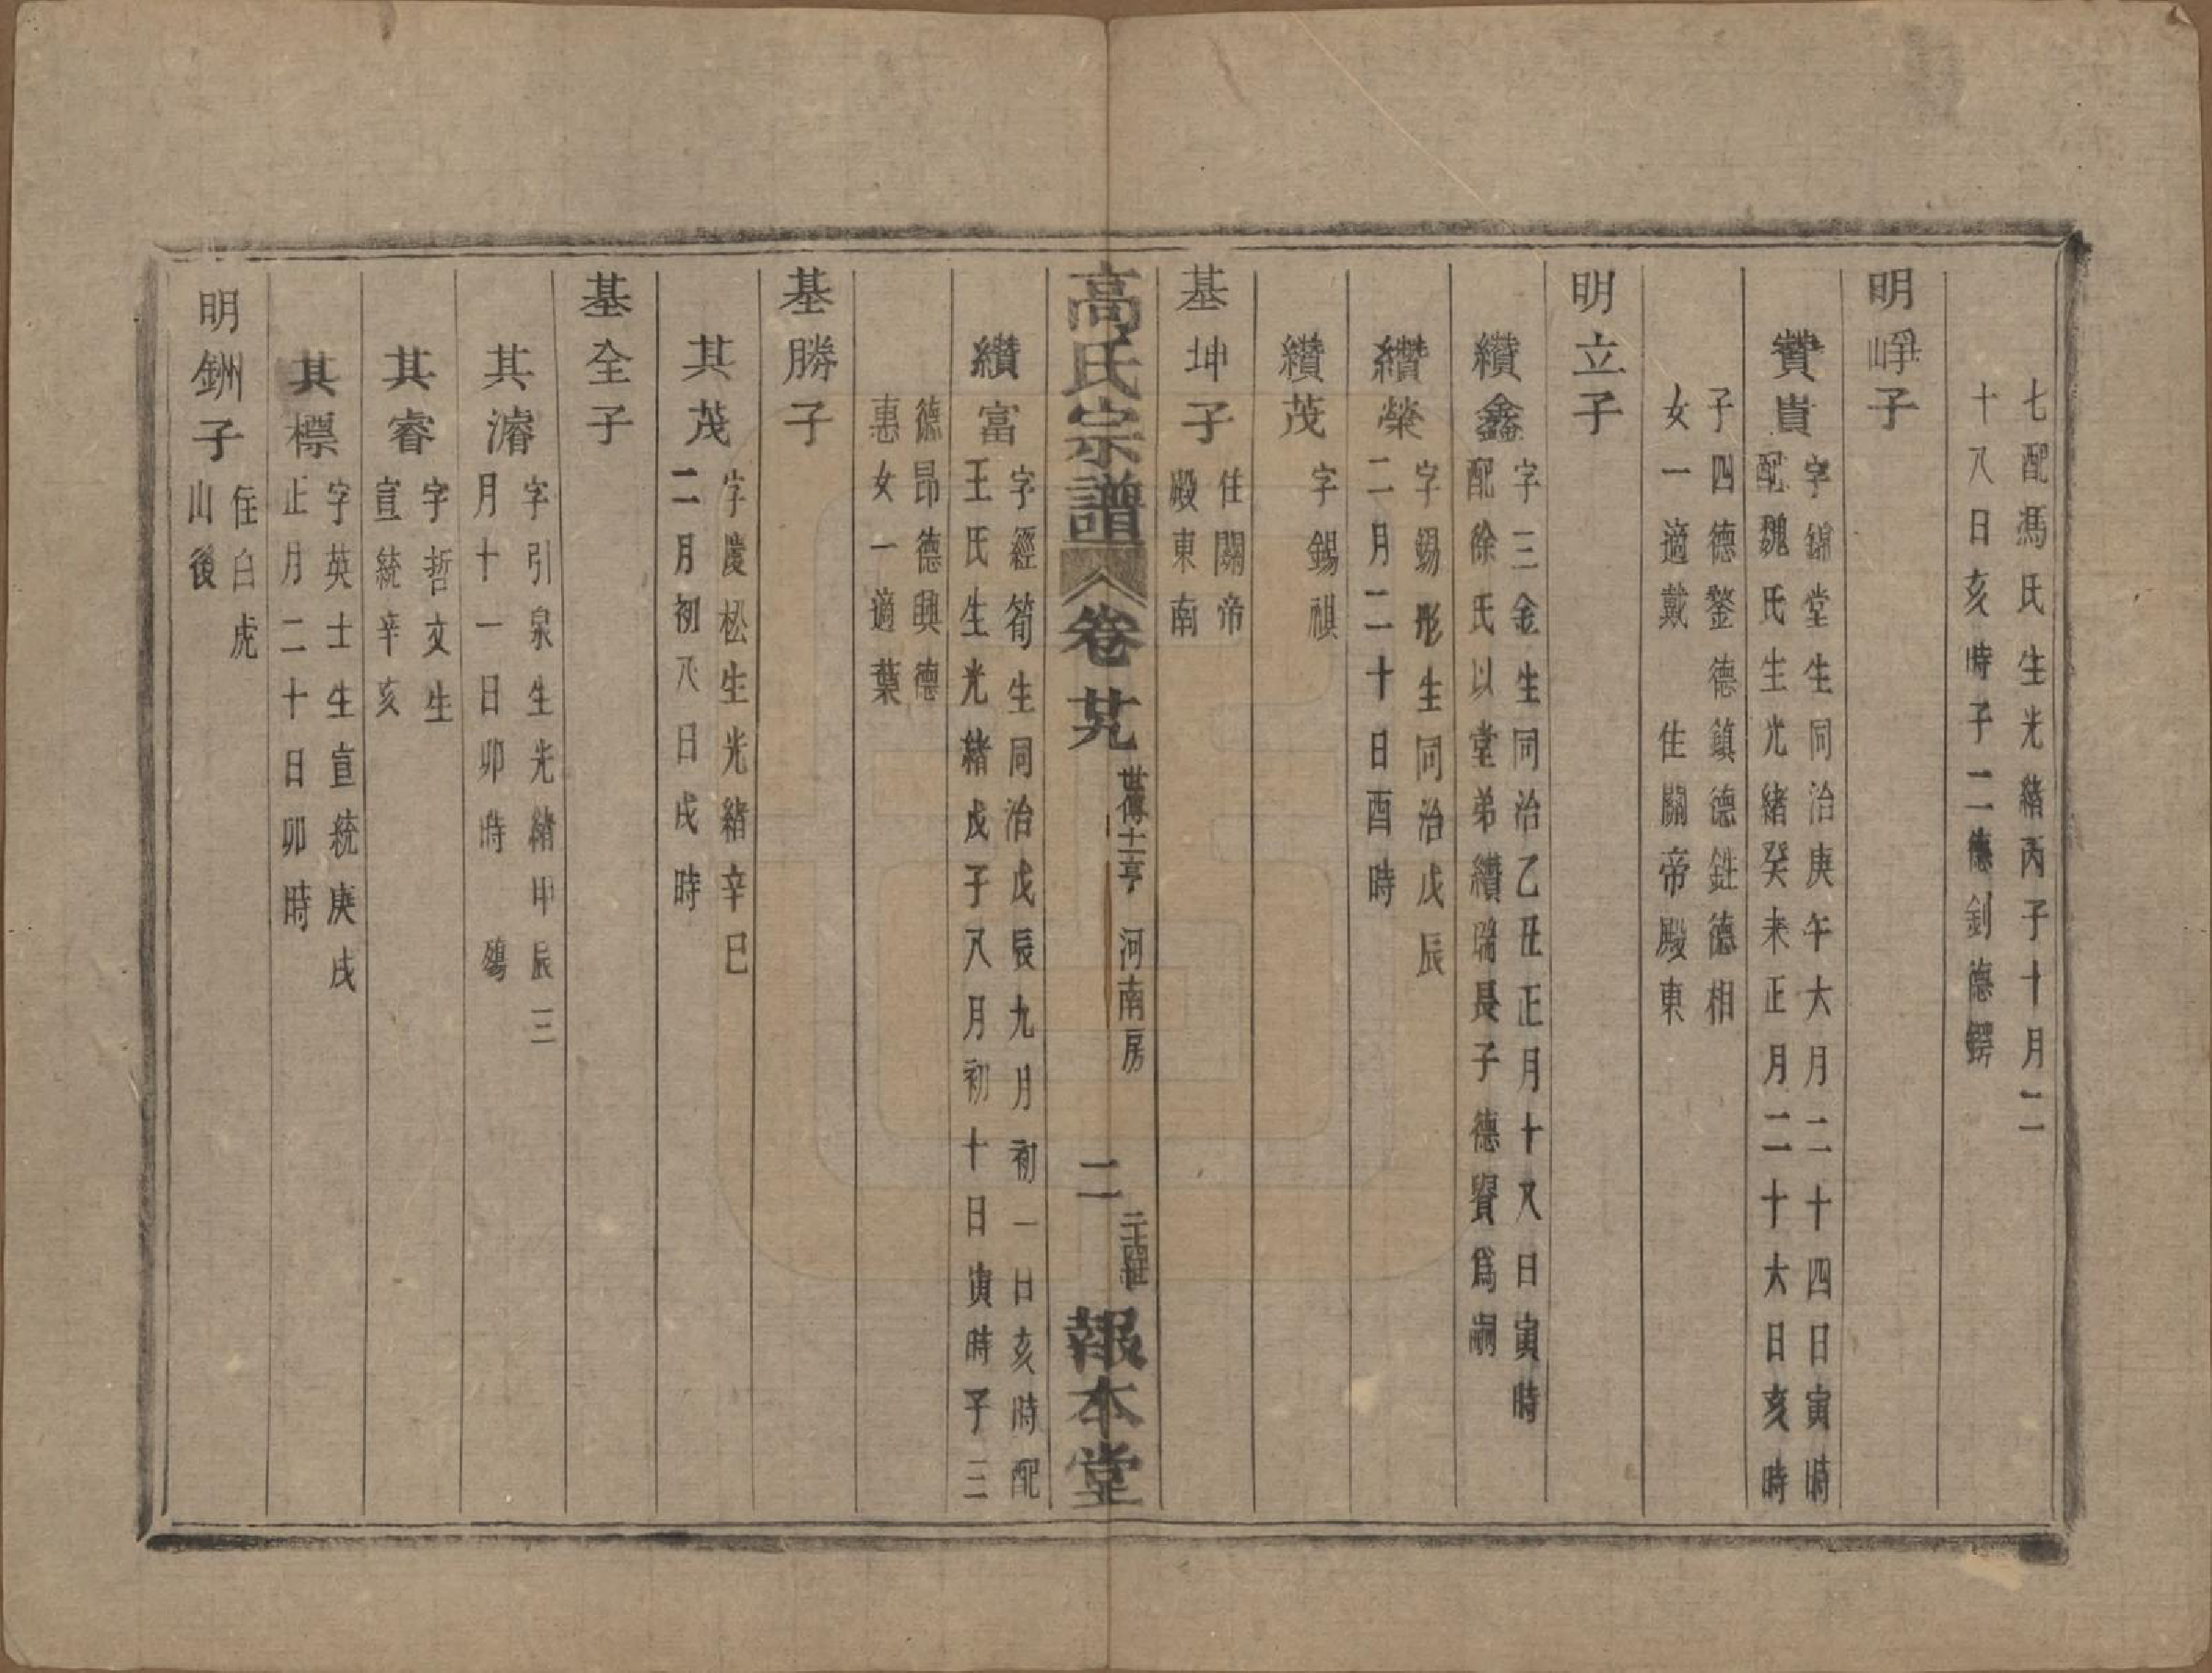 七配馮氏生光緒丙子十月二
十八日亥時子二德釗德鍔
明崢子
贊貴
字錦堂生同治庚午六月二十四日寅時
配魏氏生光緒癸未正月二十六日亥時
子四德鋆德鎮德銑德相
女一適戴 住關帝殿東
明立子
纘鑫
字三金生同治乙丑正月十八日寅時
配徐氏以堂弟纘瑞長子德賢爲嗣
纘榮
字錫彤生同治戊辰
二月二十日酉時
纘茂
字錫祺
基坤子
住關帝
殿東南
高氏宗譜
卷 廿九
世傳 十一 亨 河南房
二
報本堂
纘富
字經筍生同治戊辰九月初一日亥時配
王氏生光緒戊子八月初十日寅時子三
德昂德興德
惠女一適葉
基勝子
其茂
字慶松生光緒辛巳
二月初八日戌時
基全子
其濬
字引泉生光緒甲辰三
月十一日卯時 殤
其睿
字哲文生
宣統辛亥
其標
字英士生宣統庚戌
正月二十日卯時
明銂子
住白虎
山後